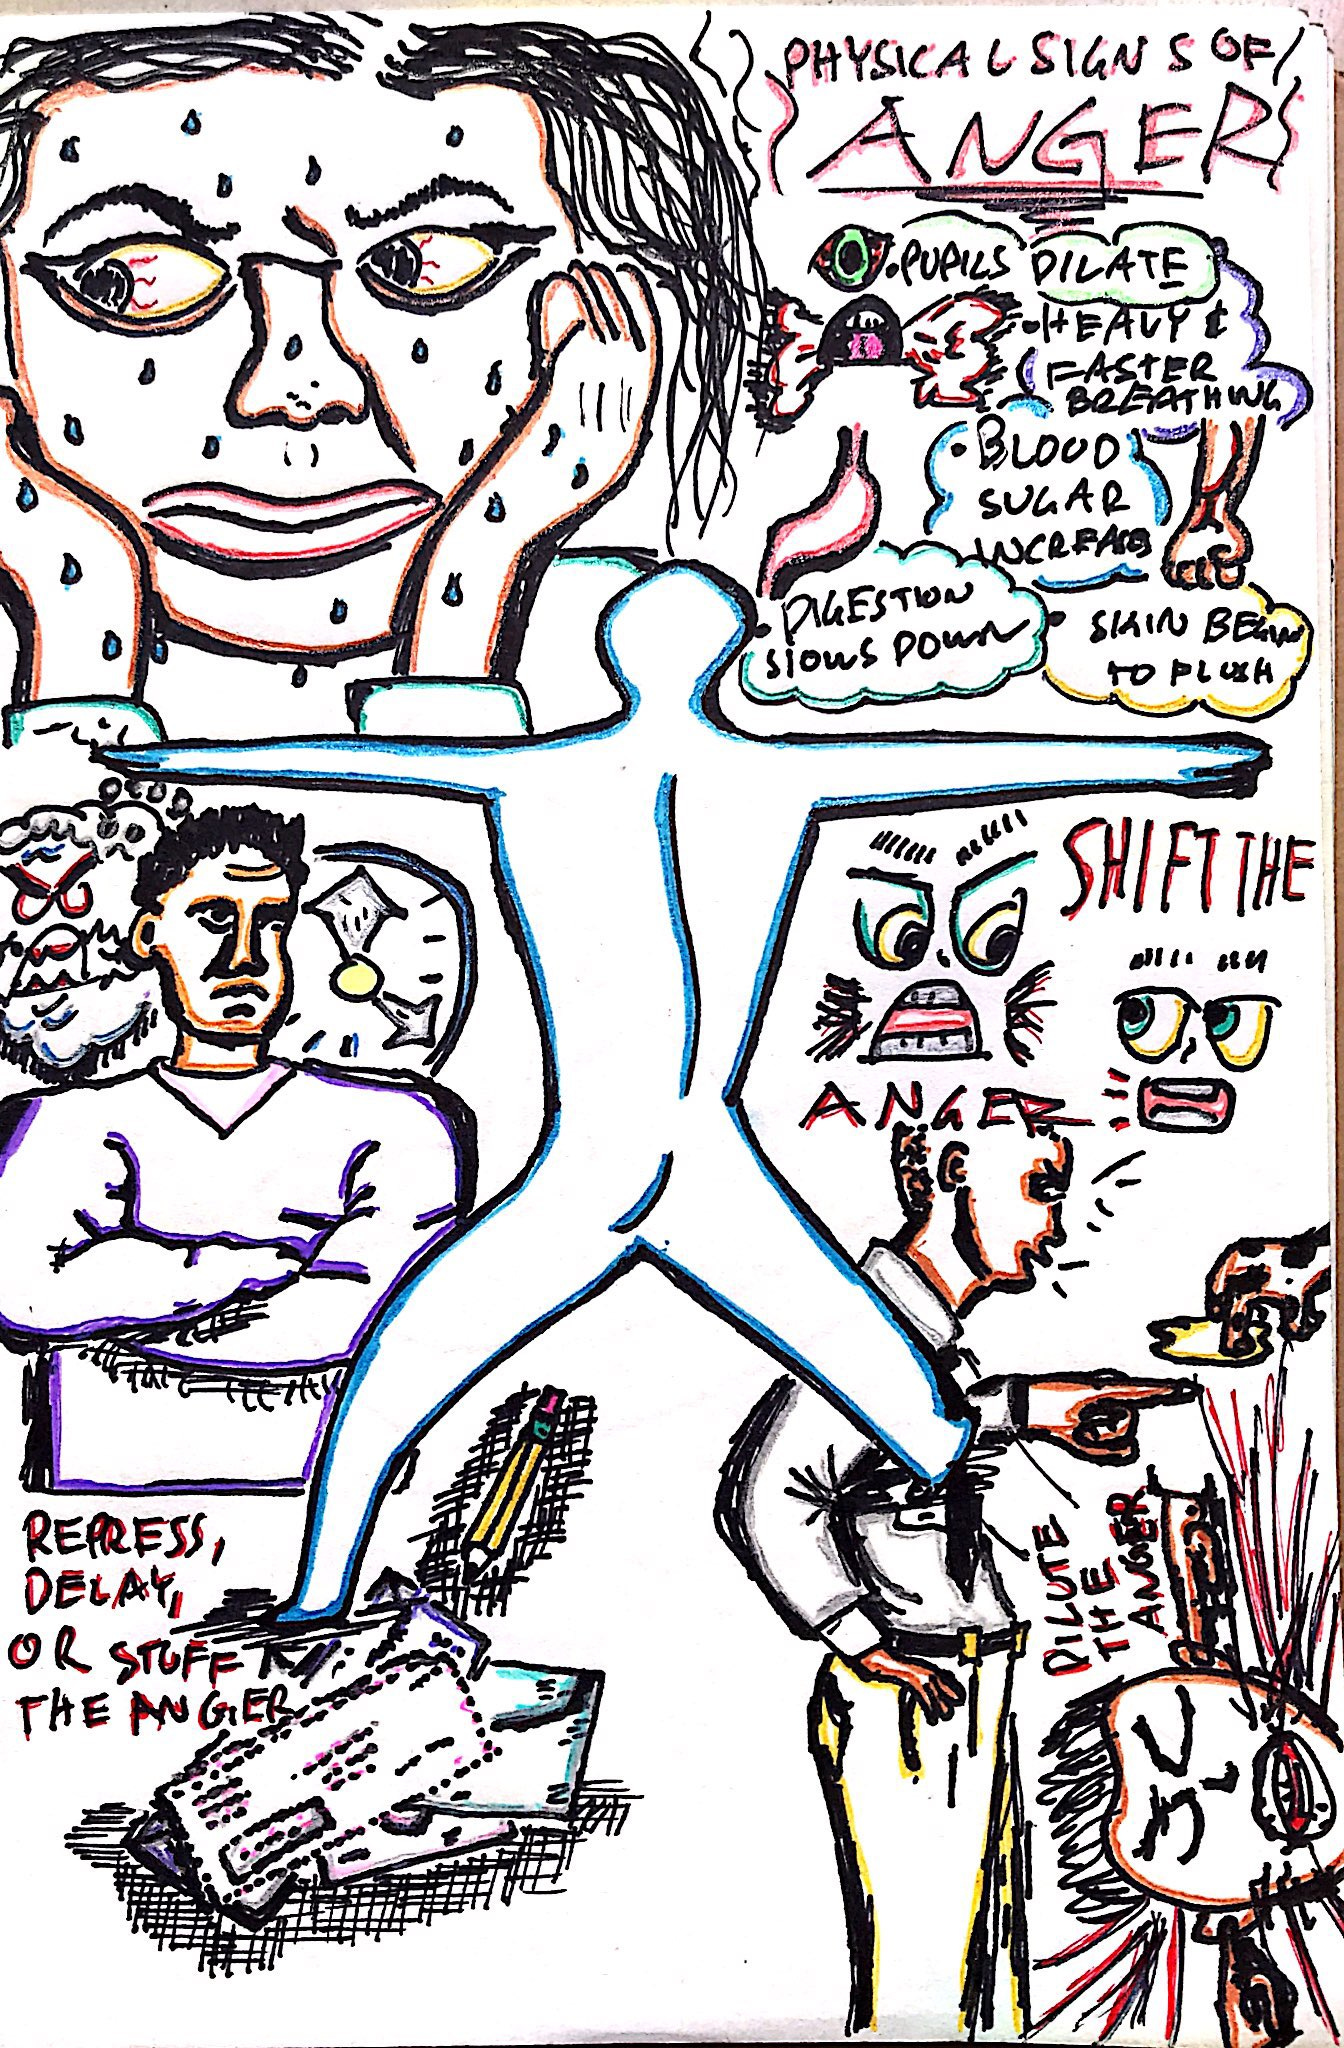 PHYSICAL SIGNS OF
ANGER
• PUPILS DILATE
• HEAVY &
FASTER
BREATHING
• BLOOD
SUGAR
INCREASES
• DIGESTION
SLOWS DOWN
• SKIN BEGINS
TO FLUSH
SHIFT THE
ANGER
REPRESS,
DELAY,
OR STUFF
THE ANGER
DILUTE
THE
ANGER